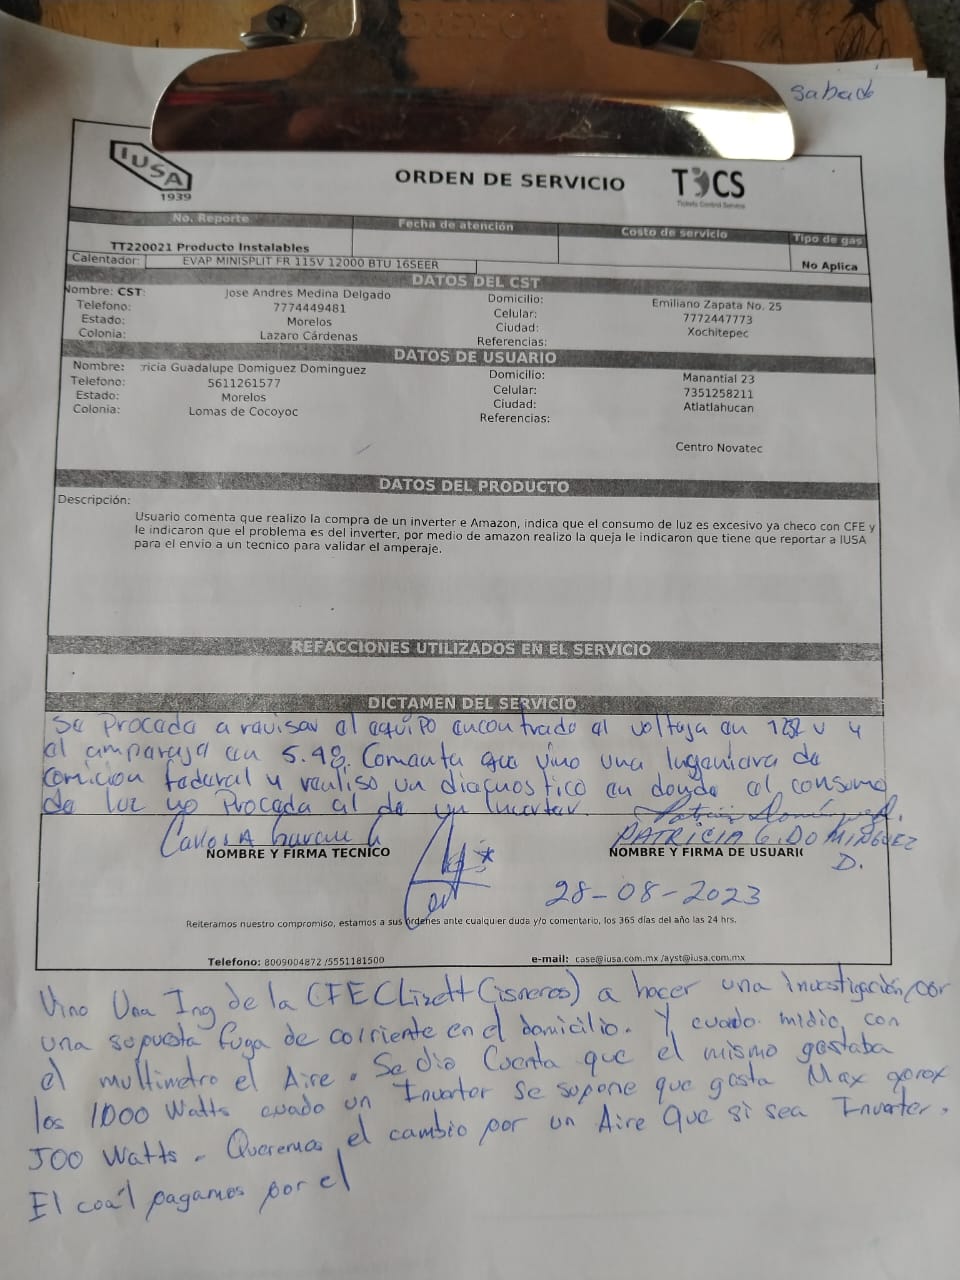 sabado
IUSA
1939
ORDEN DE SERVICIO
TCS
Tickets Control Service
No. Reporte
Fecha de atención
Costo de servicio
Tipo de gas
TT220021 Producto Instalables
No Aplica
Calentador: EVAP MINISPLIT FR 115V 12000 BTU 16SEER
DATOS DEL CST
Nombre: CST: Jose Andres Medina Delgado Domicilio: Emiliano Zapata No. 25
Telefono: 7774449481 Celular: 7772447773
Estado: Morelos Ciudad: Xochitepec
Colonia: Lazaro Cárdenas Referencias:
DATOS DE USUARIO
Nombre: ricia Guadalupe Domiguez Dominguez Domicilio: Manantial 23
Telefono: 5611261577 Celular: 7351258211
Estado: Morelos Ciudad: Atlatlahucan
Colonia: Lomas de Cocoyoc Referencias:
Centro Novatec
DATOS DEL PRODUCTO
Descripción:
Usuario comenta que realizo la compra de un inverter e Amazon, indica que el consumo de luz es excesivo ya checo con CFE y
le indicaron que el problema es del inverter, por medio de amazon realizo la queja le indicaron que tiene que reportar a IUSA
para el envio a un tecnico para validar el amperaje.
REFACCIONES UTILIZADOS EN EL SERVICIO
DICTAMEN DEL SERVICIO
Se Procede a revisar el equipo encontrado el voltaje en v y
el amperaje en 5.48. Comenta que vino una Ingeniera de
comicion federal y realiso un diagnostico en donde el consumo
de luz no Procede al de un Inverter.
Carlos A
Patricia Domínguez D.
PATRICIA G. DOMINGUEZ
D.
NOMBRE Y FIRMA TECNICO
NOMBRE Y FIRMA DE USUARIO
28-08-2023
Reiteramos nuestro compromiso, estamos a sus órdenes ante cualquier duda y/o comentario, los 365 días del año las 24 hrs.
Telefono: 8009004872 /5551181500 e-mail: case@iusa.com.mx /ayst@iusa.com.mx
Vino Una Ing de la CFE (Lizett Cisneros) a hacer una Investigación por
una supuesta fuga de corriente en el domicilio. Y cuado midio con
el multimetro el Aire. Se dio Cuenta que el mismo gastaba
los 1000 Watts cuado un Inverter se supone que gasta Max aprox
500 Watts. Queremos el cambio por un Aire Que si sea Inverter.
El coál pagamos por el